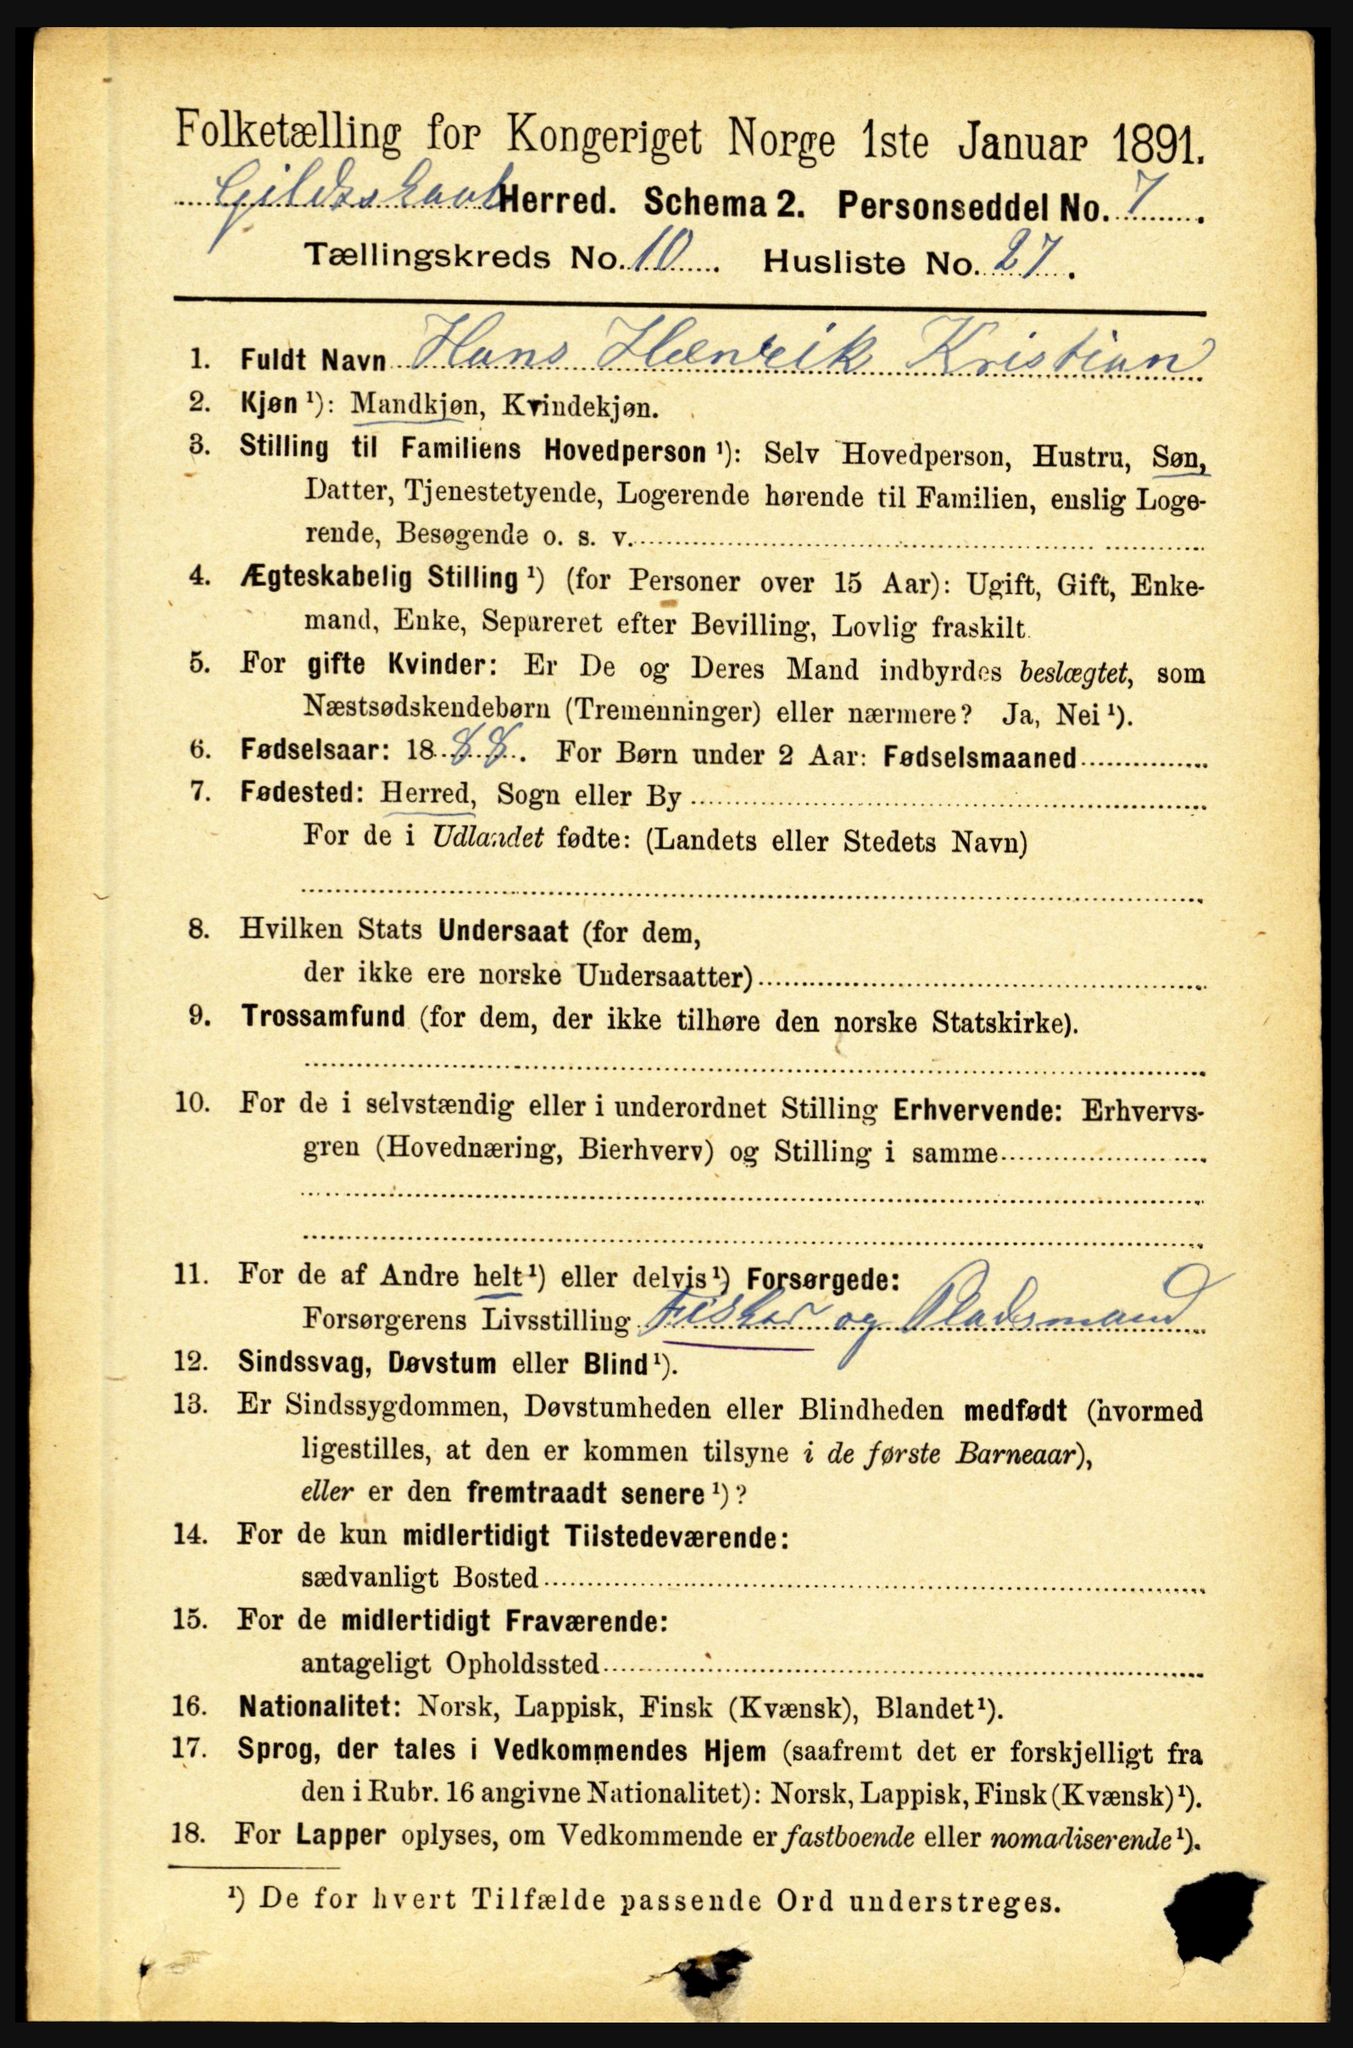 Folketælling for Kongeriget Norge 1ste Januar 1891.
Gildeskaal Herred. Schema 2. Personseddel No. 7.
Tællingskreds No. 10. Husliste No. 27.
1. Fuldt Navn Hans Hænrik Kristian
2. Kjøn ¹): Mandkjøn, Kvindekjøn.
3. Stilling til Familiens Hovedperson ¹): Selv Hovedperson, Hustru, Søn,
Datter, Tjenestetyende, Logerende hørende til Familien, enslig Loge-
rende, Besøgende o. s. v.
4. Ægteskabelig Stilling ¹) (for Personer over 15 Aar): Ugift, Gift, Enke-
mand, Enke, Separeret efter Bevilling, Lovlig fraskilt.
5. For gifte Kvinder: Er De og Deres Mand indbyrdes beslægtet, som
Næstsødskendebørn (Tremenninger) eller nærmere? Ja, Nei ¹).
6. Fødselsaar: 1888. For Børn under 2 Aar: Fødselsmaaned
7. Fødested: Herred, Sogn eller By
For de i Udlandet fødte: (Landets eller Stedets Navn)
8. Hvilken Stats Undersaat (for dem,
der ikke ere norske Undersaatter)
9. Trossamfund (for dem, der ikke tilhøre den norske Statskirke).
10. For de i selvstændig eller i underordnet Stilling Erhvervende: Erhvervs-
gren (Hovednæring, Bierhverv) og Stilling i samme
11. For de af Andre helt ¹) eller delvis ¹) Forsørgede:
Forsørgerens Livsstilling Fisker og Pladsmand
12. Sindssvag, Døvstum eller Blind ¹).
13. Er Sindssygdommen, Døvstumheden eller Blindheden medfødt (hvormed
ligestilles, at den er kommen tilsyne i de første Barneaar),
eller er den fremtraadt senere ¹)?
14. For de kun midlertidigt Tilstedeværende:
sædvanligt Bosted
15. For de midlertidigt Fraværende:
antageligt Opholdssted
16. Nationalitet: Norsk, Lappisk, Finsk (Kvænsk), Blandet ¹).
17. Sprog, der tales i Vedkommendes Hjem (saafremt det er forskjelligt fra
den i Rubr. 16 angivne Nationalitet): Norsk, Lappisk, Finsk (Kvænsk) ¹).
18. For Lapper oplyses, om Vedkommende er fastboende eller nomadiserende ¹).
¹) De for hvert Tilfælde passende Ord understreges.